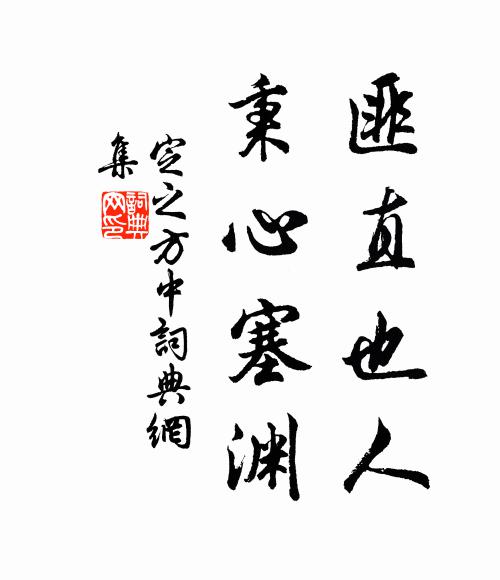 匪直也人
秉心塞渊
定之方中詞典網
集
詞典
网印